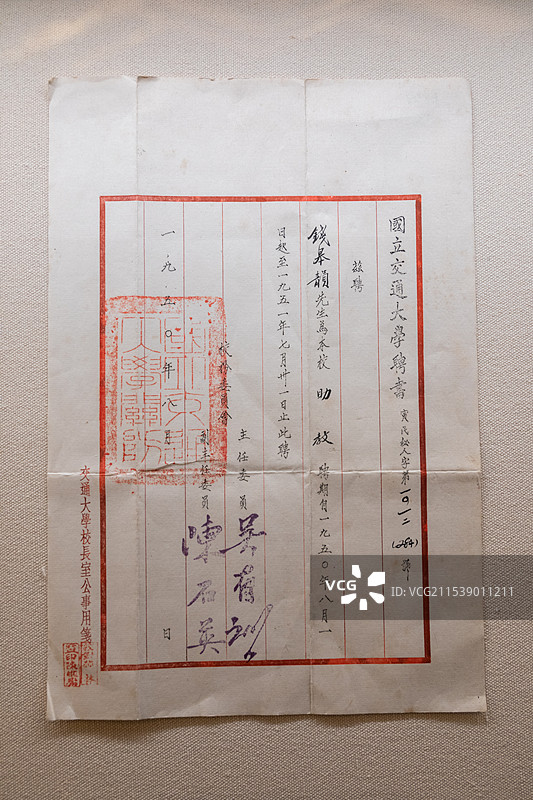 國立交通大學聘書 寅民秘人字第一〇一二(284)號
茲聘
錢皋韻先生為本校 助教 聘期自一九五〇年八月一
日起至一九五一年七月卅一日止此聘
校務委員會
主任委員 吳有訓
副主任委員 陳石英
一九五〇年八月 日
交通大學校長室公事用箋
VCG
ID: VCG211539011211